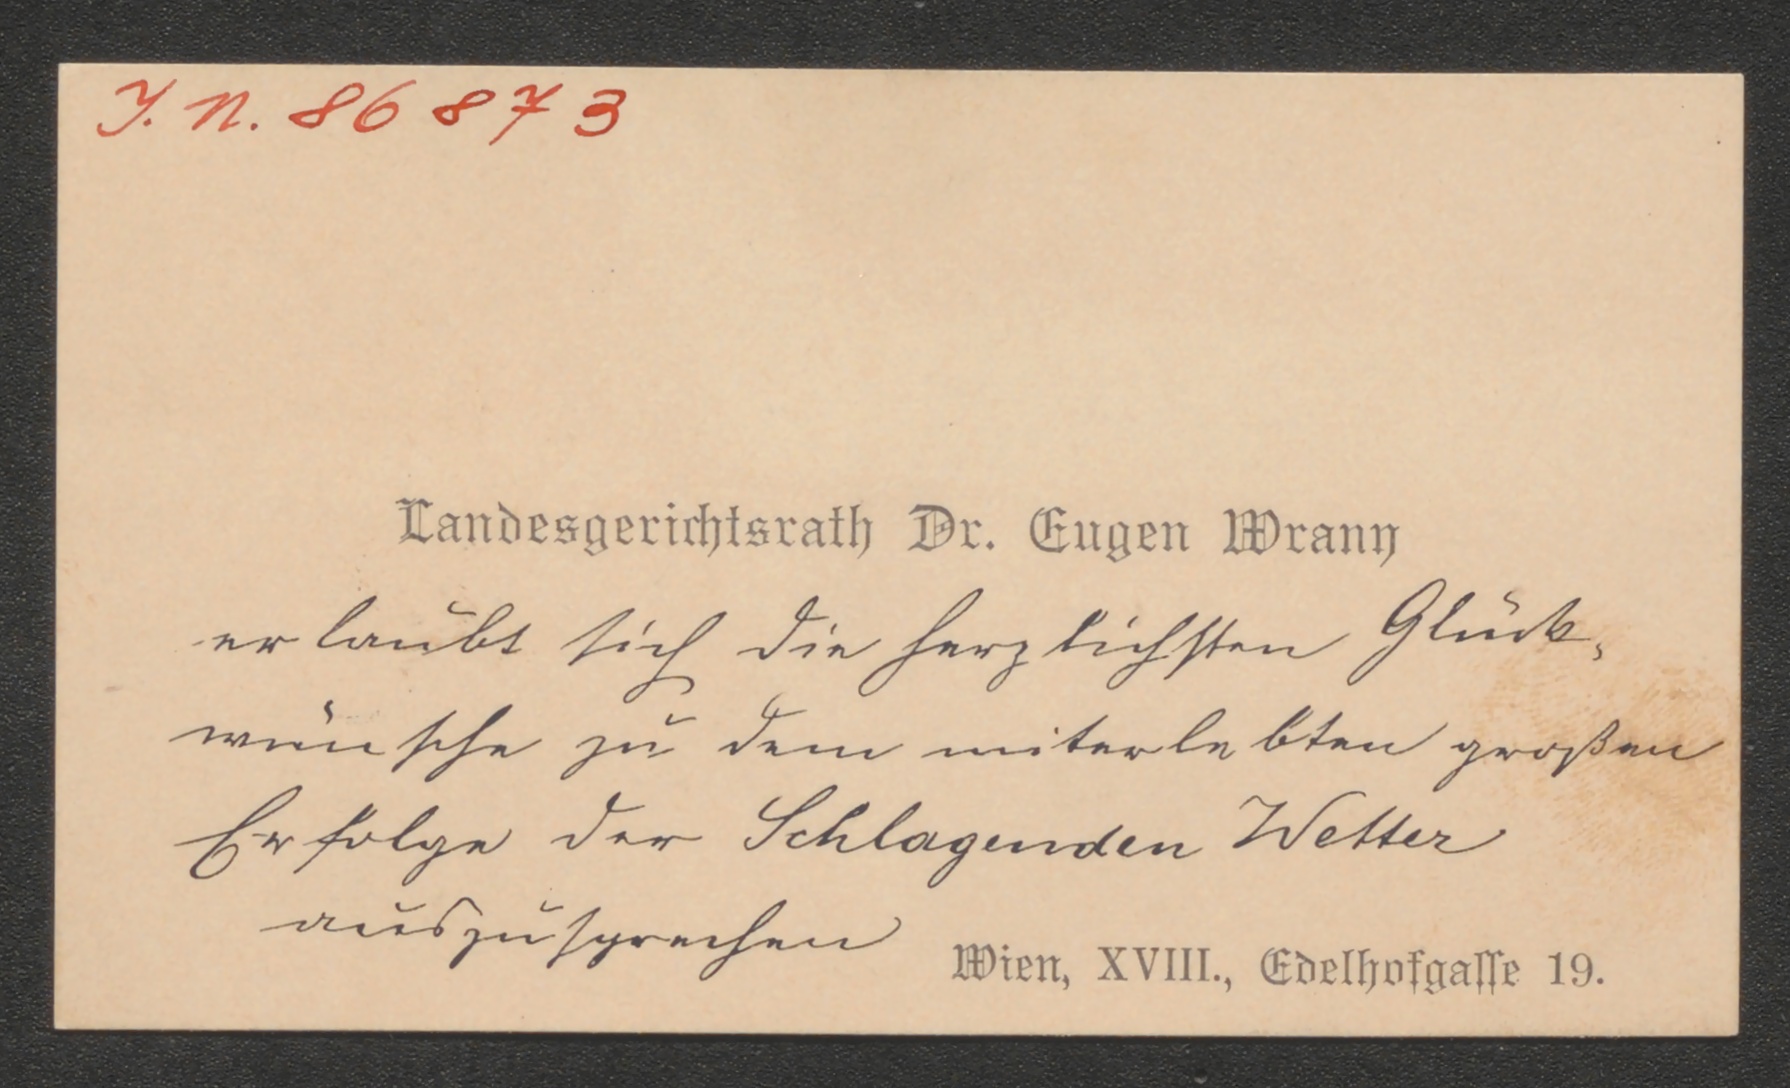 J. N. 86873
Landesgerichtsrath Dr. Eugen Wrany
erlaubt sich die herzlichsten Glück-
wünsche zu dem miterlebten großen
Erfolge der Schlagenden Wetter
auszusprechen
Wien, XVIII., Edelhofgasse 19.